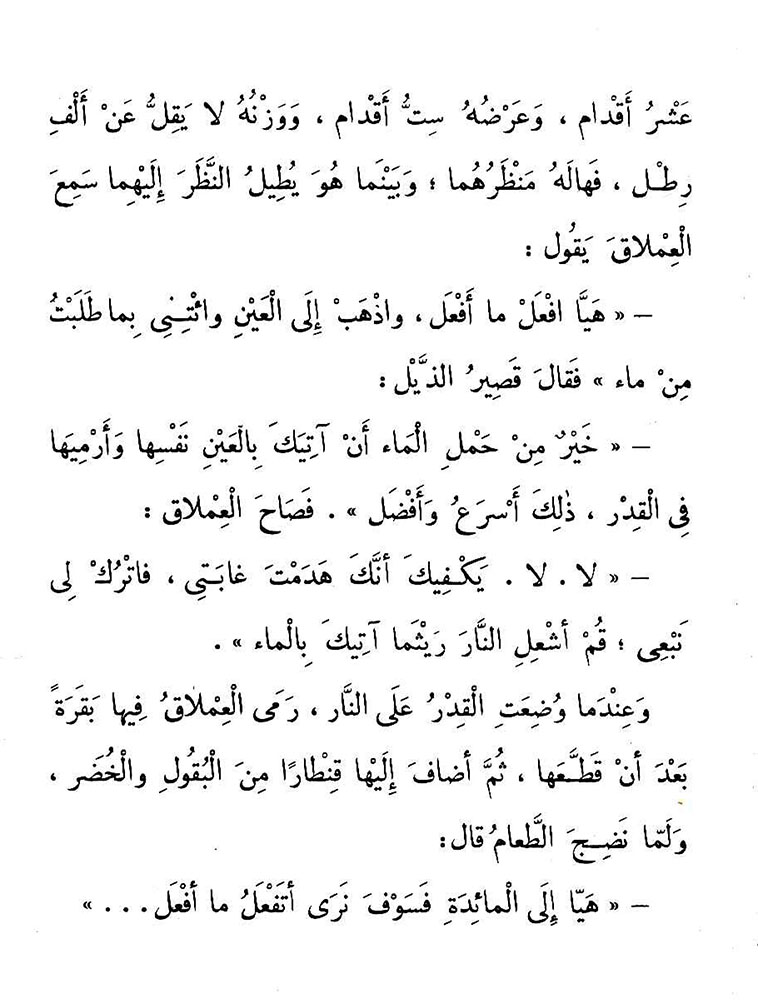 عَشْرُ أَقْدام ، وَعَرْضُهُ سِتُّ أَقْدام ، وَوَزْنُهُ لا يَقِلُّ عَنْ أَلْفِ
رِطْل ، فَهالَهُ مَنْظَرُهُما ؛ وَبَيْنَما هُوَ يُطِيلُ النَّظَرَ إِلَيْهِما سَمِعَ
الْعِمْلاقَ يَقُول :
– « هَيَّا افْعَلْ ما أَفْعَل ، واذْهَبْ إِلَى الْعَيْنِ وائْتِنِي بِما طَلَبْتُ
مِنْ ماء » فَقالَ قَصِيرُ الذَّيْل :
– « خَيْرٌ مِنْ حَمْلِ الْمَاء أَنْ آتِيَكَ بِالْعَيْنِ نَفْسِها وَأَرْمِيَها
فِي الْقِدْر ، ذٰلِكَ أَسْرَعُ وَأَفْضَل » . فَصَاحَ الْعِمْلاق :
– « لا . لا . يَكْفِيكَ أَنَّكَ هَدَمْتَ غابَتِي ، فاتْرُكْ لِي
نَبْعِي ؛ قُمْ أشْعِلِ النَّارَ رَيْثَما آتِيكَ بِالْماء » .
وَعِنْدَما وُضِعَتِ الْقِدْرُ عَلَى النَّار ، رَمَى الْعِمْلاقُ فِيها بَقَرَةً
بَعْدَ أنْ قَطَّعَها ، ثُمَّ أضافَ إِلَيْها قِنْطارًا مِنَ الْبُقُولِ والْخُضَر ،
وَلَمّا نَضِجَ الطَّعامُ قال :
– « هَيّا إِلَى الْمائِدَةِ فَسَوْفَ نَرَى أتَفْعَلُ ما أفْعَل ... »